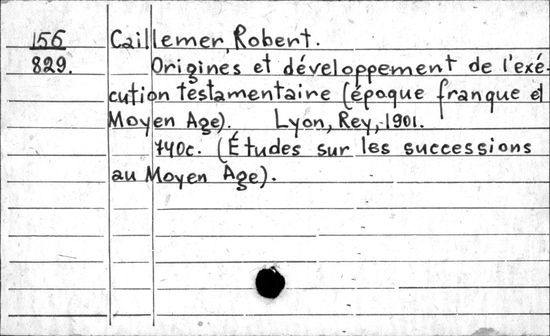 156 Caillemer, Robert.
829. Origines et développement de l'exé-
cution testamentaire (époque franque et
Moyen Age). Lyon, Rey, 1901.
740c. (Études sur les successions
au Moyen Age).